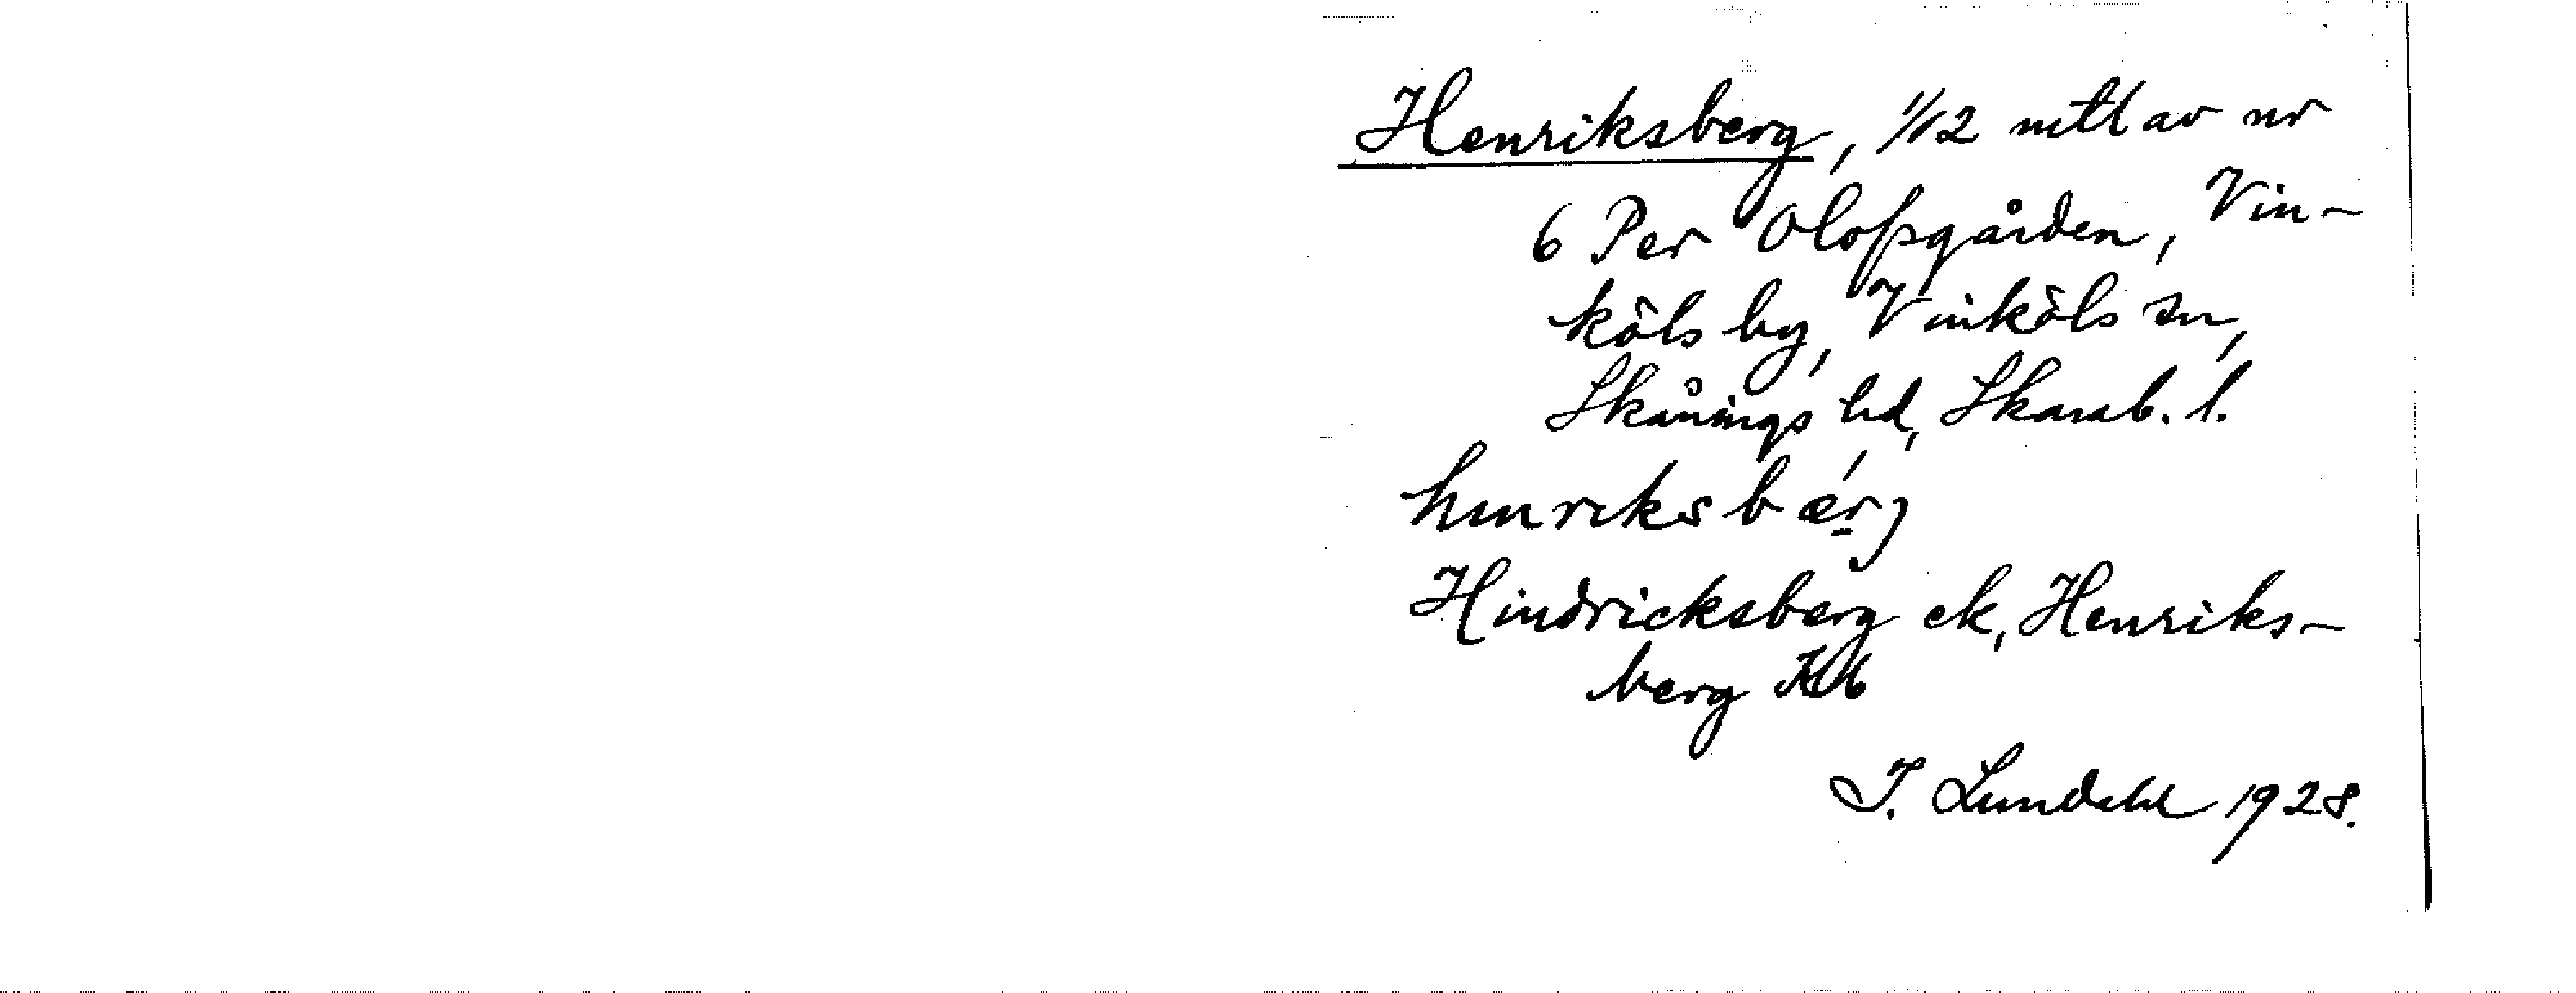 Henriksberg, 1/12 mtl av nr
6 Per Olofsgården, Vin-
köls by, Vinköls sn,
Skånings hd, Skarab. l.
hinriksbærj
Hindricksberg ek, Henriks-
berg Kb
I. Lundahl 1928.